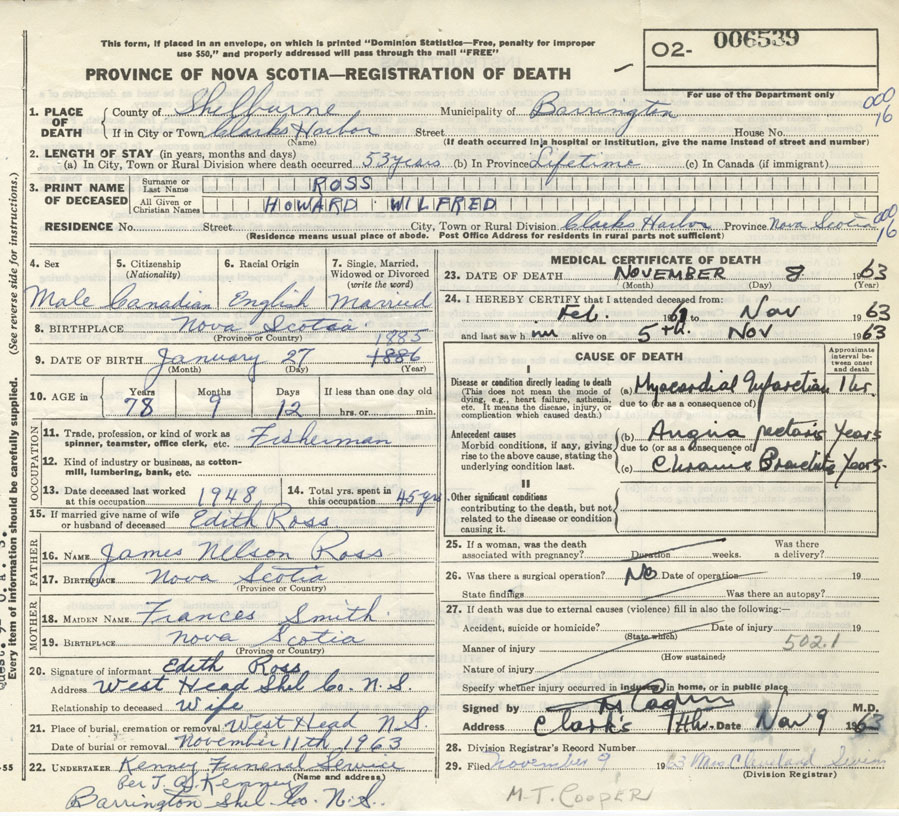 This form, if placed in an envelope, on which is printed "Dominion Statistics—Free, penalty for improper
use $50," and properly addressed will pass through the mail "FREE"
O2- 006539
PROVINCE OF NOVA SCOTIA—REGISTRATION OF DEATH
For use of the Department only
1. PLACE OF DEATH County of Shelburne Municipality of Barrington 000 16
If in City or Town Clarks Harbor Street House No.
(Name) (If death occurred in a hospital or institution, give the name instead of street and number)
2. LENGTH OF STAY (in years, months and days)
(a) In City, Town or Rural Division where death occurred 53 years (b) In Province Lifetime (c) In Canada (if immigrant)
3. PRINT NAME OF DECEASED Surname or Last Name ROSS
All Given or Christian Names HOWARD WILFRED
RESIDENCE No. Street City, Town or Rural Division Clarks Harbor Province Nova Scotia 000 16
(Residence means usual place of abode. Post Office Address for residents in rural parts not sufficient)
4. Sex 5. Citizenship (Nationality) 6. Racial Origin 7. Single, Married, Widowed or Divorced (write the word)
Male Canadian English Married
8. BIRTHPLACE Nova Scotia
(Province or Country)
1885
9. DATE OF BIRTH January 27 1886
(Month) (Day) (Year)
10. AGE in Years Months Days If less than one day old
78 9 12 hrs. or min.
OCCUPATION
11. Trade, profession, or kind of work as spinner, teamster, office clerk, etc. Fisherman
12. Kind of industry or business, as cotton-mill, lumbering, bank, etc.
13. Date deceased last worked at this occupation 1948 14. Total yrs. spent in this occupation 45 yrs
15. If married give name of wife or husband of deceased Edith Ross
FATHER
16. NAME James Nelson Ross
17. BIRTHPLACE Nova Scotia
(Province or Country)
MOTHER
18. MAIDEN NAME Frances Smith
19. BIRTHPLACE Nova Scotia
(Province or Country)
20. Signature of informant Edith Ross
Address West Head Shel Co. N.S.
Relationship to deceased Wife
21. Place of burial, cremation or removal West Head N.S.
Date of burial or removal November 11th 1963
22. UNDERTAKER Kenney Funeral Service
(Name and address)
per J. Kenney
Barrington Shel Co. N.S.
MEDICAL CERTIFICATE OF DEATH
23. DATE OF DEATH NOVEMBER 8 1963
(Month) (Day) (Year)
24. I HEREBY CERTIFY that I attended deceased from:
Feb. 1961 to Nov 1963
and last saw him alive on 5th. Nov 1963
CAUSE OF DEATH
Approximate interval between onset and death
I
Disease or condition directly leading to death
(This does not mean the mode of dying, e.g., heart failure, asthenia, etc. It means the disease, injury, or complication which caused death.)
(a) Myocardial Infarction 1 hr.
due to (or as a consequence of)
Antecedent causes
Morbid conditions, if any, giving rise to the above cause, stating the underlying condition last.
(b) Angina pectoris Years
due to (or as a consequence of)
(c) Chronic Bronchitis Years.
II
Other significant conditions
contributing to the death, but not related to the disease or condition causing it.
25. If a woman, was the death associated with pregnancy? Duration weeks. Was there a delivery?
26. Was there a surgical operation? No Date of operation 19
State findings Was there an autopsy?
27. If death was due to external causes (violence) fill in also the following:—
Accident, suicide or homicide? Date of injury 19
(State which)
Manner of injury 502.1
(How sustained)
Nature of injury
Specify whether injury occurred in industry, in home, or in public place
Signed by M.D.
Address Clark's Hbr. Date Nov 9 1963
28. Division Registrar's Record Number
29. Filed November 9 1963 Mrs
(Division Registrar)
M-T. COOPER
(See reverse side for instructions.)
Every item of information should be carefully supplied.
-55